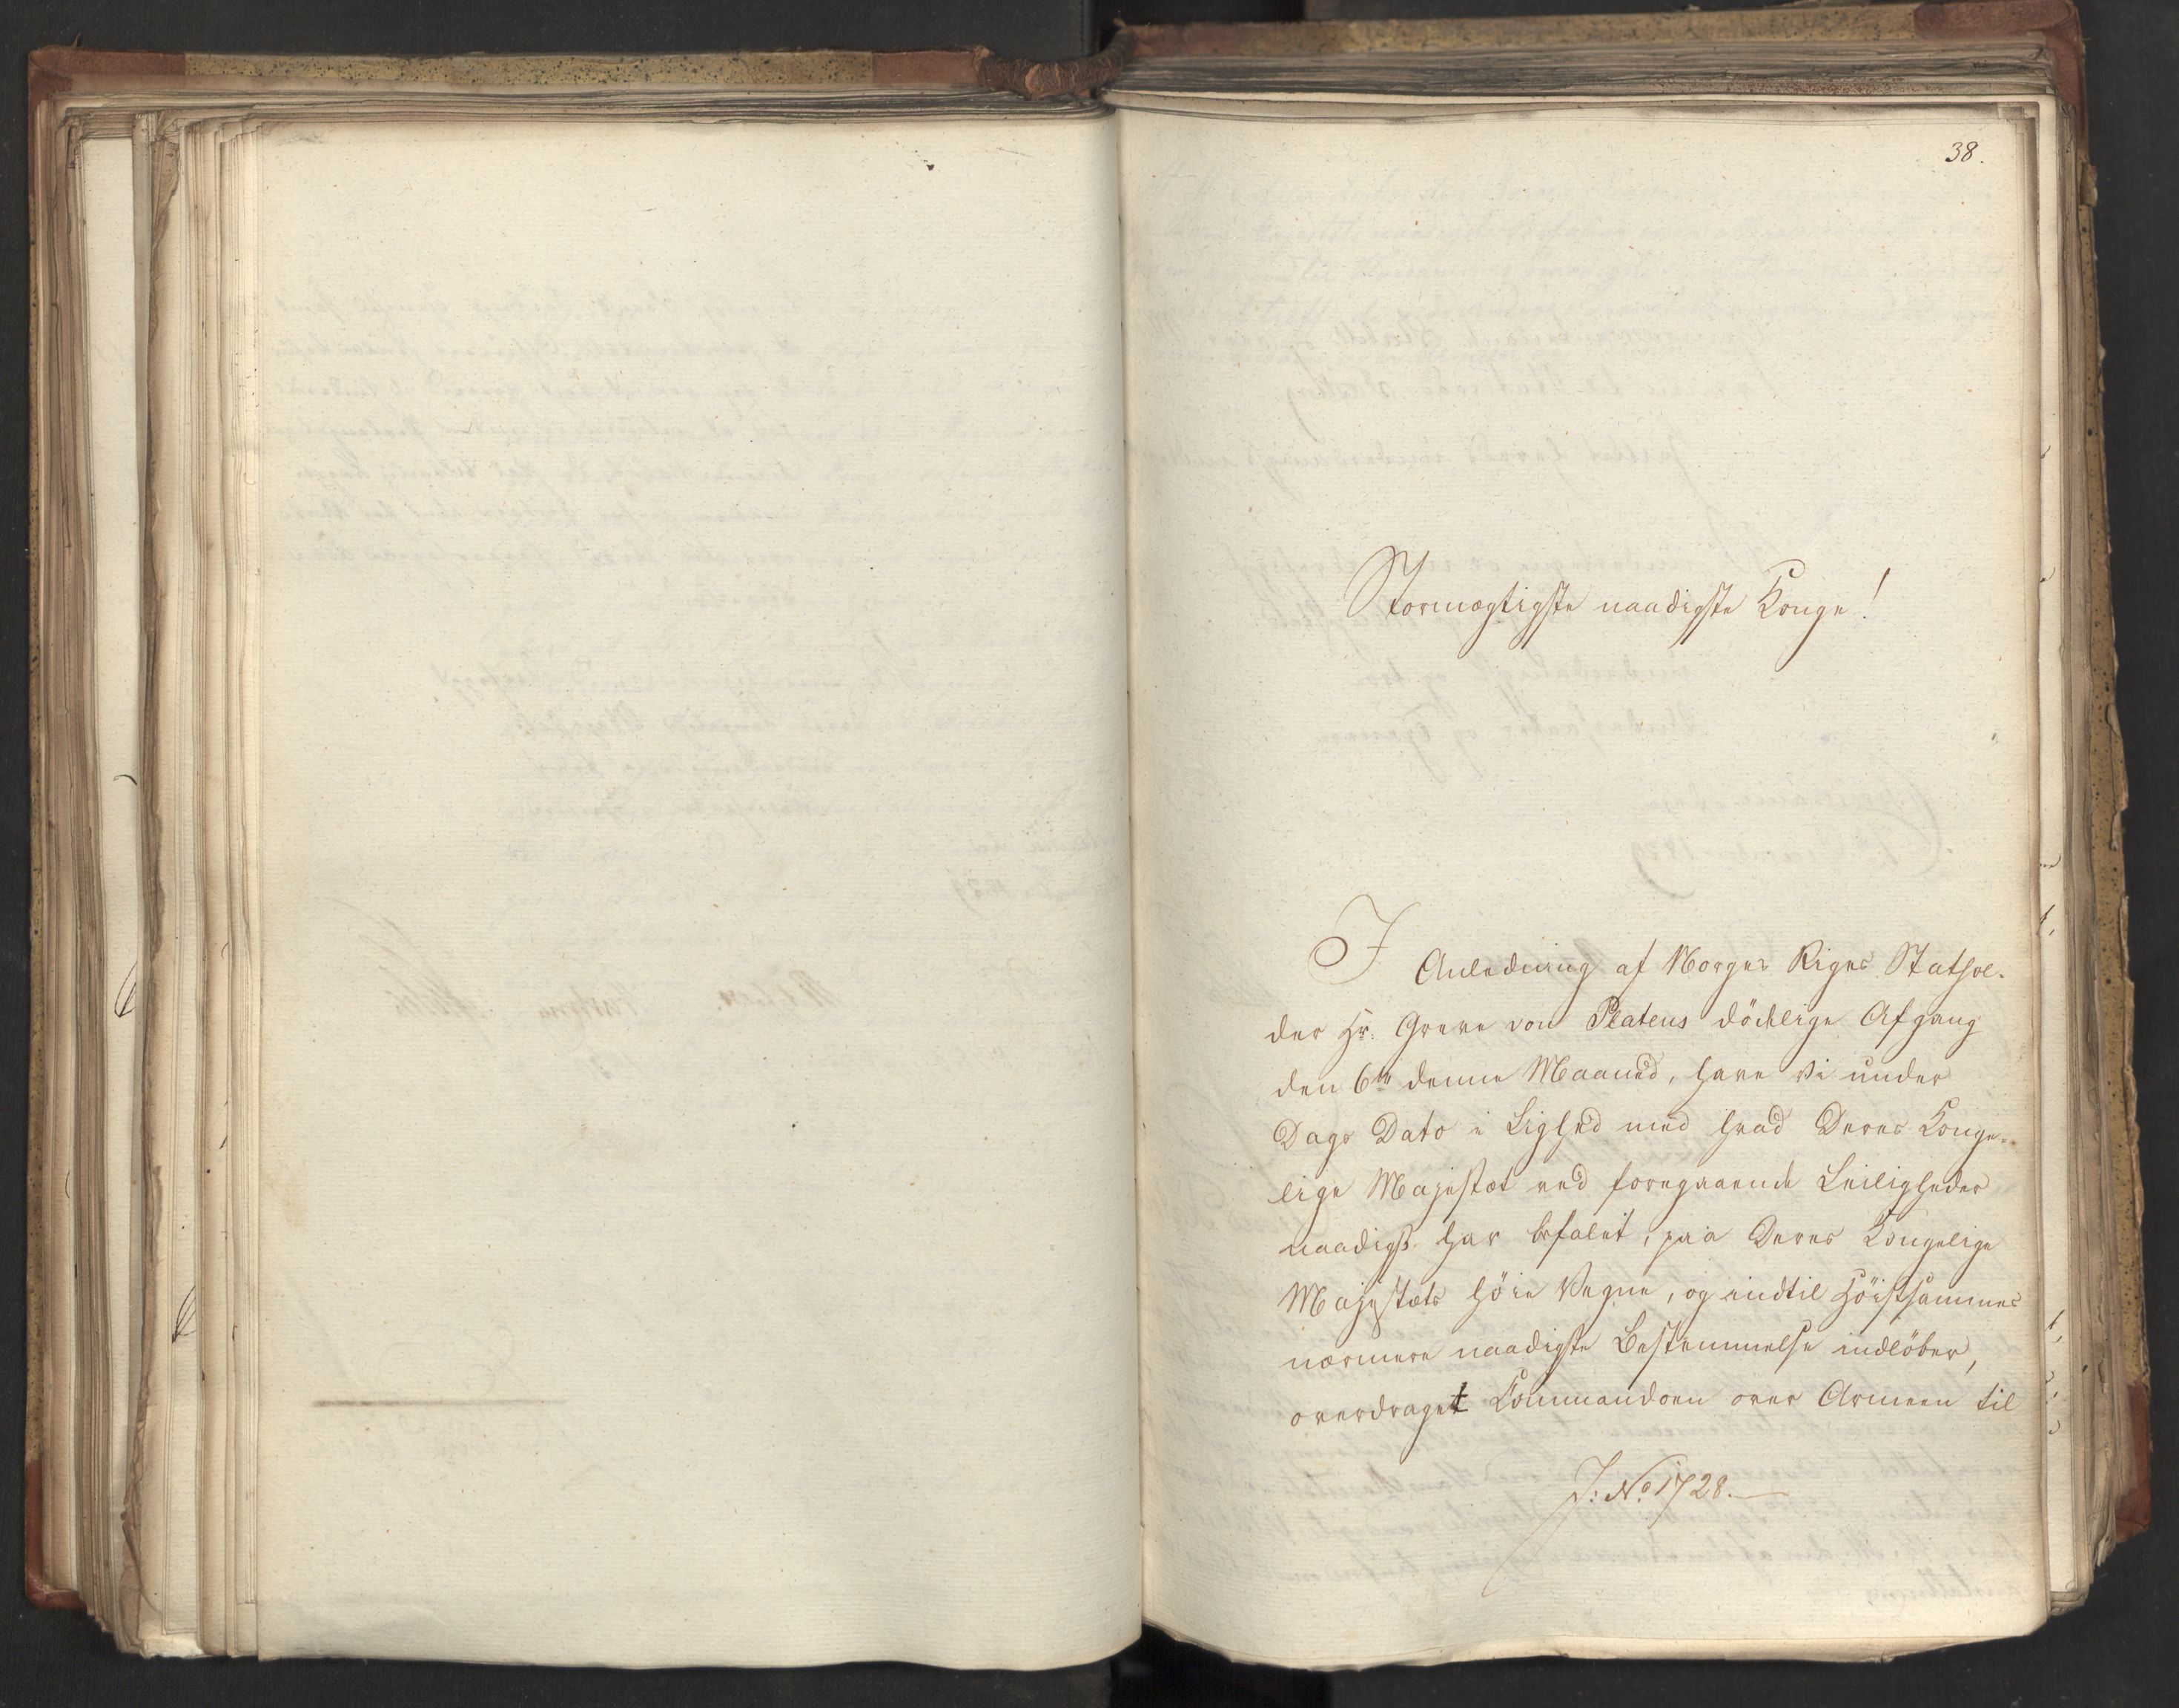 38.
Stormægtigste naadigste Konge!
I Anledning af Norges Riges Stathol-
der Hr. Greve von Platens dödelige Afgang
den 6te denne Maaned, have Vi under
Dags Dato i Lighed med hvad Deres Konge-
lige Majestæt ved foregaaende Leiligheder
naadigst har befalet, paa Deres Kongelige
Majestæts höie Vegne, og indtil Höistsammes
nærmere naadigste Bestemmelse indlöber,
overdraget Commandoen over Armeen til
J: No 1728.